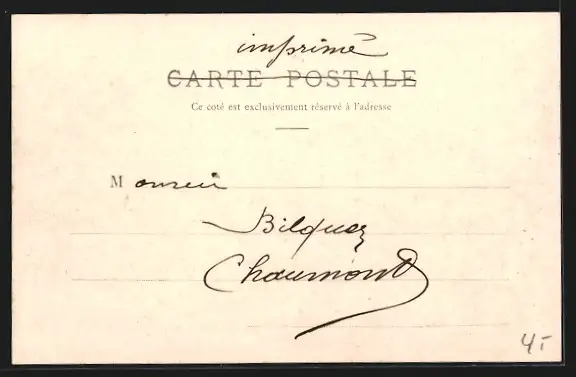 imprimé
CARTE POSTALE
Ce coté est exclusivement réservé à l'adresse
Monsieur
Bilquez
Chaumont